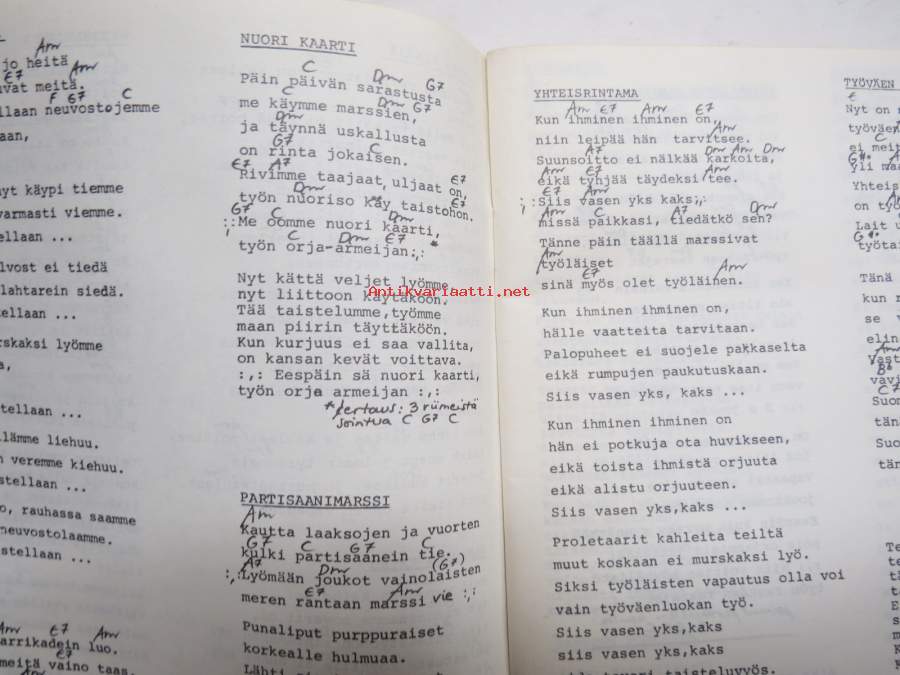 Am
jo heitä
E7 Am
uvat meitä.
F E7 C
ellaan neuvostojemme
aan,
nyt käypi tiemme
varmasti viemme.
ellaan ...
lvost ei tiedä
lahtarein siedä.
stellaan ...
rskaksi lyömme
stellaan ...
llämme liehuu.
n veremme kiehuu.
stellaan ...
o, rauhassa saamme
neuvostolaamme.
stellaan ...
Am E7 Am
arrikadein luo.
meitä vaino taas.
Am E7
NUORI KAARTI
C Dm G7
Päin päivän sarastusta
C Dm G7
me käymme marssien,
Dm
ja täynnä uskallusta
G7 C
on rinta jokaisen.
E7 A7
Rivimme taajaat, uljaat on,
Dm E7
työn nuoriso käy taistohon.
G7 C Dm E7
:,:Me oomme nuori kaarti,
C Dm E7 *
työn orja-armeijan:,:
Nyt kättä veljet lyömme
nyt liittoon käytäköön.
Tää taistelumme,työmme
maan piirin täyttäköön.
Kun kurjuus ei saa vallita,
on kansan kevät voittava.
:,: Eespäin sä nuori kaarti,
työn orja armeijan :,:
*kertaus: 3 riimeistä
sointua C G7 C
PARTISAANIMARSSI
Am
Kautta laaksojen ja vuorten
G7 C G7 C
kulki partisaanein tie.
A7 Dm (G7)
:,:Lyömään joukot vainolaisten
E7 Am
meren rantaan marssi vie :,:
Punaliput purppuraiset
korkealle hulmuaa.
YHTEISRINTAMA
Am E7 Am E7
Kun ihminen ihminen on,
Am
niin leipää hän tarvitsee.
A7 Dm Am Dm
Suunsoitto ei nälkää karkoita,
Am E7 Am
eikä tyhjää täydeksi tee.
E7 Am
:,:Siis vasen yks kaks:,:
Am C A7 Dm
missä paikkasi, tiedätkö sen?
Tänne päin täällä marssivat
Am
työläiset
E7 Am
sinä myös olet työläinen.
Kun ihminen ihminen on,
hälle vaatteita tarvitaan.
Palopuheet ei suojele pakkaselta
eikä rumpujen paukutuskaan.
Siis vasen yks, kaks ...
Kun ihminen ihminen on
hän ei potkuja ota huvikseen,
eikä toista ihmistä orjuuta
eikä alistu orjuuteen.
Siis vasen yks,kaks ...
Proletaarit kahleita teiltä
muut koskaan ei murskaksi lyö.
Siksi työläisten vapautus olla voi
vain työväenluokan työ.
Siis vasen yks,kaks
siis vasen yks,kaks
TYÖVÄEN
Nyt on
työväen
C
ei meit
G#
yli maa
Yhteis
on työ
Lait u
G#
työtai
Tänä
kun
se v
elin
Am
Vast
B
vavi
C7
Suom
tän
Suo
tän
Antikvariaatti.net